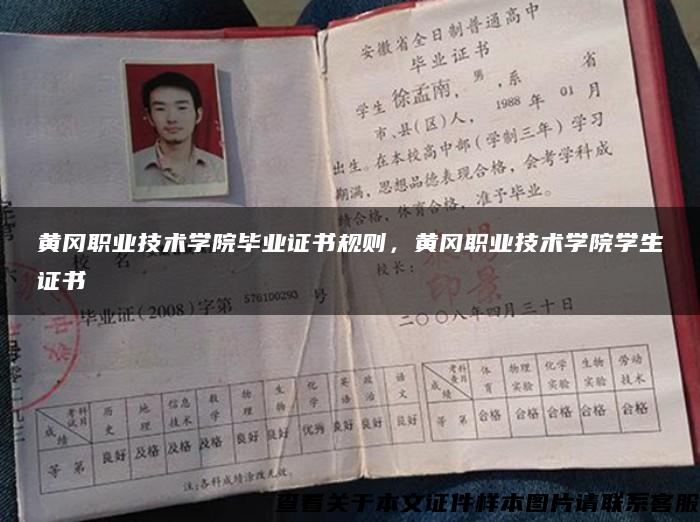 安徽省全日制普通高中
毕业证书
学生徐孟南，男，系 省
市、县（区）人，1988 年 01 月
出生。在本校高中部（学制三年）学习
期满，思想品德表现合格，会考学科成
绩合格，体育合格，准予毕业。
黄冈职业技术学院毕业证书规则，黄冈职业技术学院学生
证书
校名
校长：
毕业证(2008)字第 576100293 号
二〇〇八年四月三十日
考试科目 历史 地理 信息技术 数学 物理 生物 化学 英语 政治 语文
成绩
等第 良好 及格 及格 及格 良好 良好 优秀 良好 良好 良好
考查科目 体育 物理实验 化学实验 生物实验 劳动技术
成绩
等第 合格 合格 合格 合格 合格
注:各科成绩涂改无效。
查看关于本文证件样本图片请联系客服